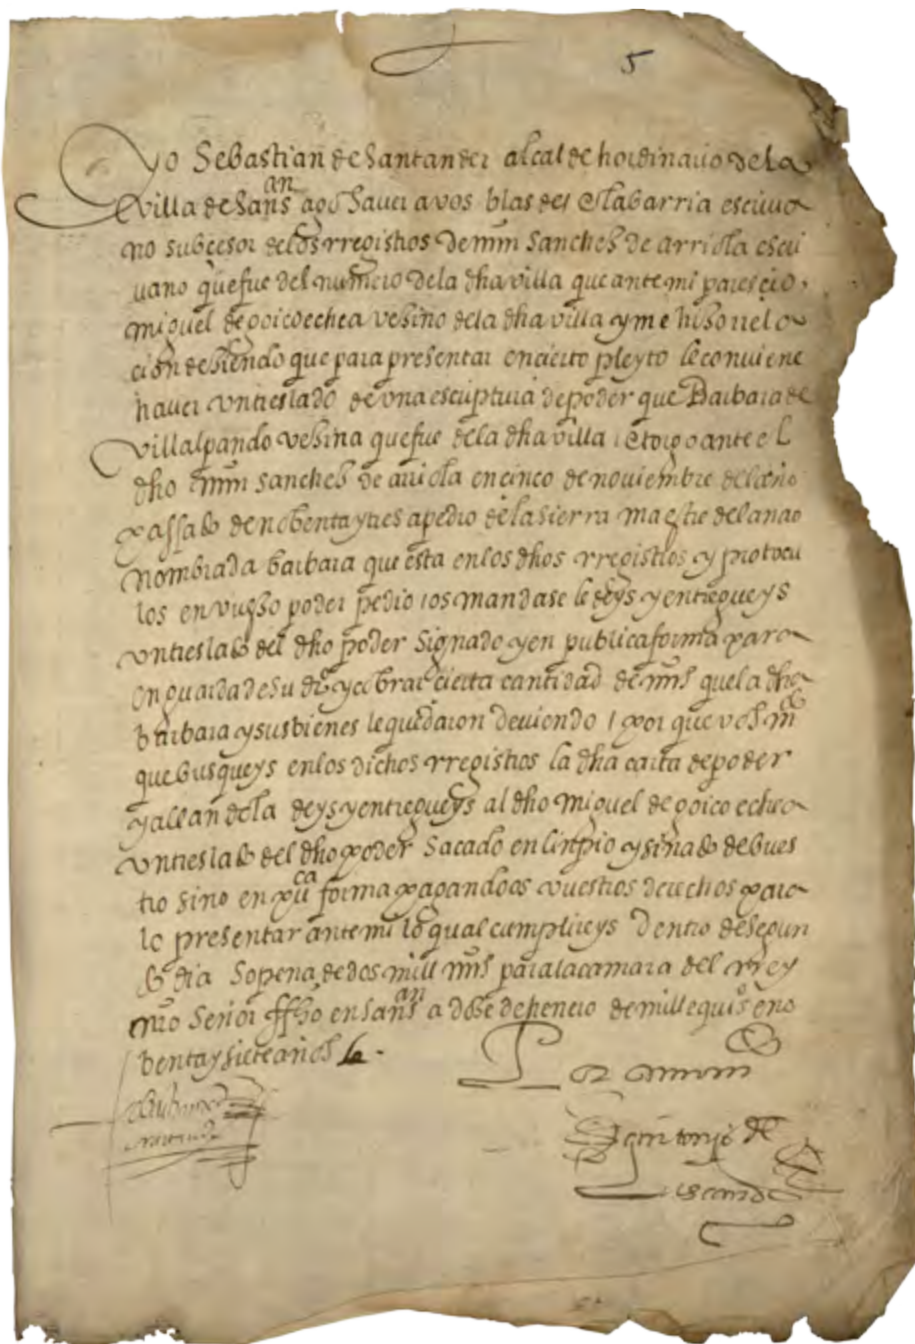 5
Yo Sebastian de Santander alcalde hordinario de la
Villa de San Sn an ago Saver a vos blas de Estabarria escriva
no subcesor de los rregistros de mrn Sanches de arriola escri
vano que fue del numero de la dha villa que ante mi parescio
miguel de goicoechea vesino de la dha villa y me hiso rrela
cion desiendo que para presentar en cierto pleyto le conviene
haver vn treslado de vna escriptura de poder que Barbara de
villalpando vesina que fue de la dha villa otorgo ante el
dho mrn Sanches de arriola en cinco de noviembre del año
passado de nobenta y tres a pedro de la sierra maestre de la nao
nombrada barbara que esta en los dhos rregistros y protocu
los en vuestro poder pedio os mandase le deys y entregueys
vn treslado del dho poder signado y en publica forma para
en guarda de su dro y cobrar cierta cantidad de mrs que la dha
barbara y sus bienes le quedaron deviendo por que vos mdo
que busqueys en los dichos rregistros la dha carta de poder
y allandola deys y entregueys al dho miguel de goicoechea
vn treslado del dho poder sacado en limpio y sinado de bues
tro sino en puca forma pagandoos vuestros derechos para
lo presentar ante mi lo qual cumplireys dentro de segun
do dia so pena de dos mill mrs para la camara del rrey
nro Señor ffho en San Sn an a dose de henero de mill e quis e no
benta y siete años
Por
Antonio de